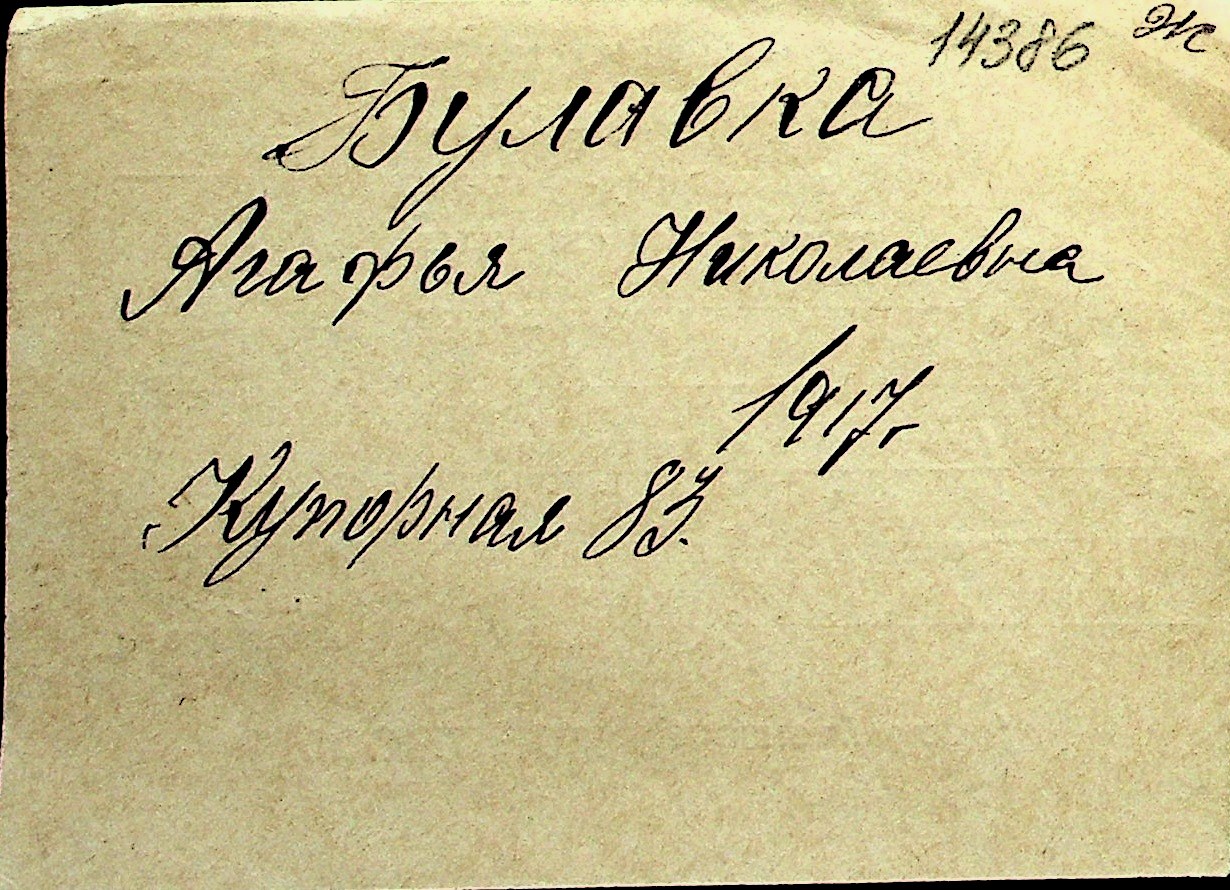 14386 Ж
Булавка
Агафья Николаевна
1917г
Купорная 83.